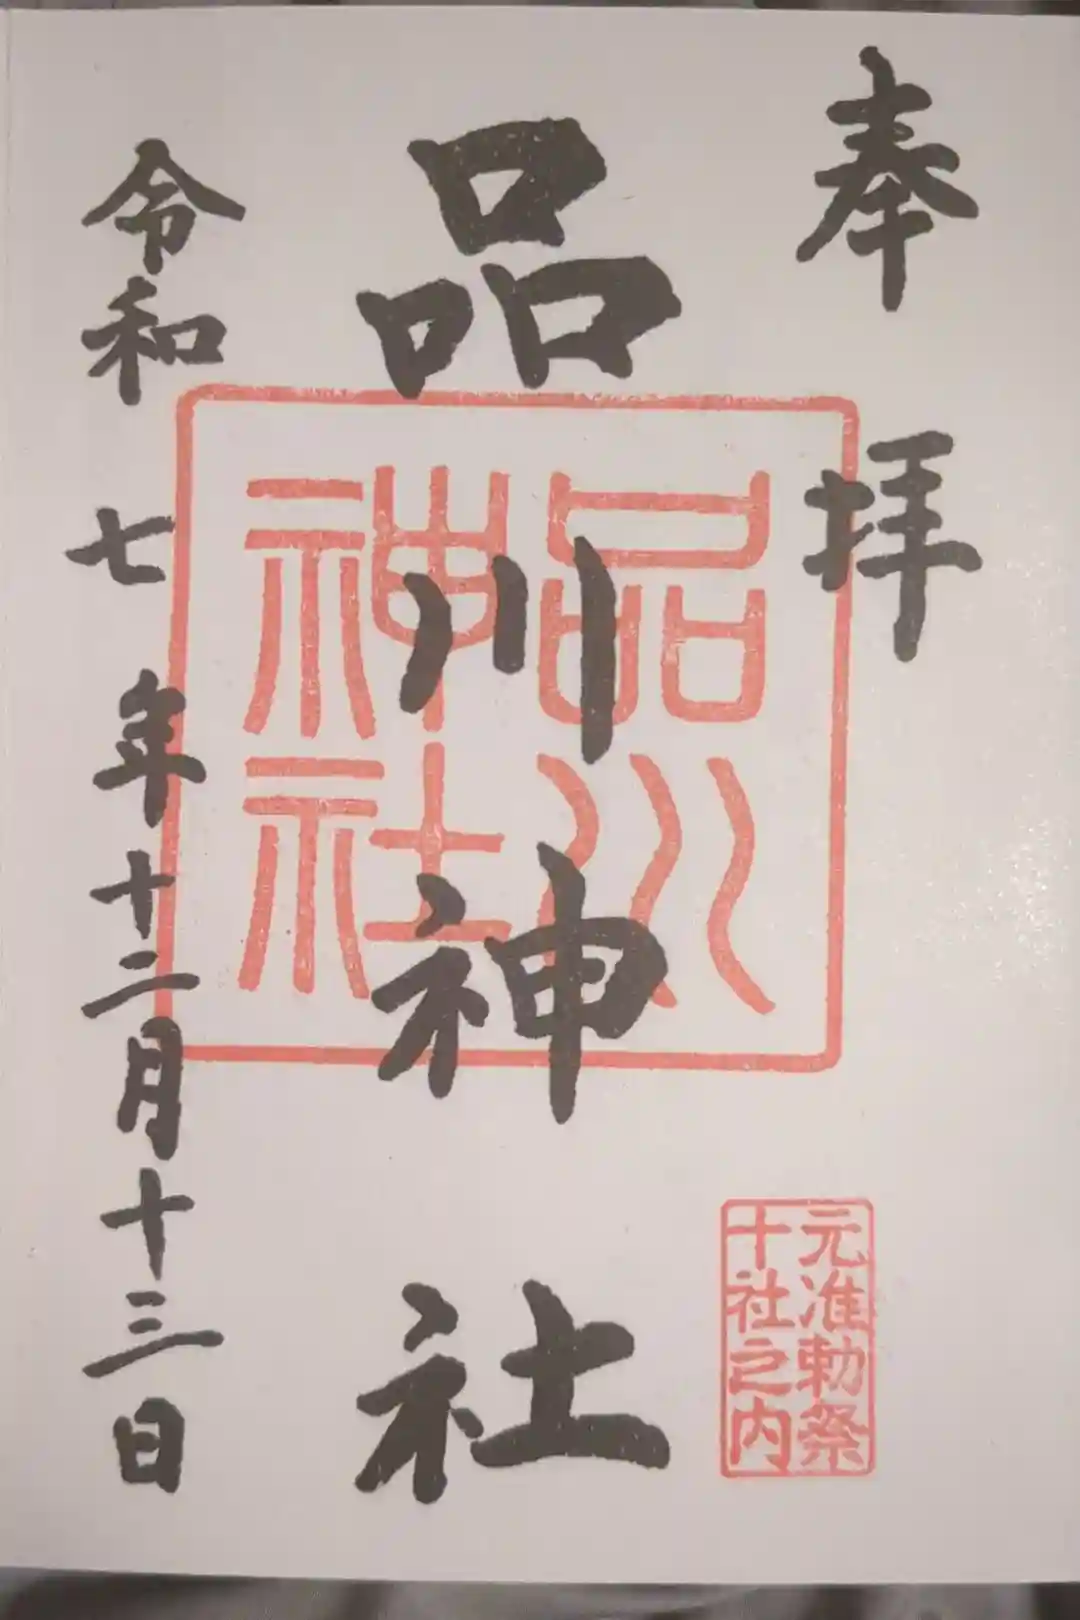 奉拝
品川神社
令和七年十二月十三日
品川
神社
元准勅祭
十社之内